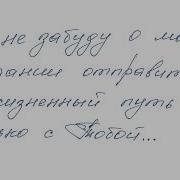 не забуду о ми
рании отправит
изненный путь
ько с Тобой...